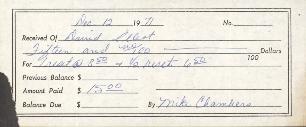 Dec 12 1971 No.
Received Of David Select
Fifteen and no/100 Dollars
100
For Treat @ 8 50 + 1/2 reset 6 50
Previous Balance $
Amount Paid $ 15.00
Balance Due $ By Mike Chambers